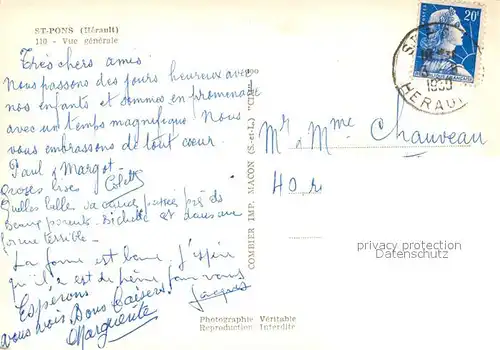 ST-PONS (Hérault)
110 - Vue générale
Très chers amis.
Nous passons des jours heureux avec
nos enfants et sommes en promenade
avec un temps magnifique Nous
vous embrassons de tout cœur.
Paul & Margot.
Grosses bises Colette
Quelles belles vacances passées près de
beaux parents. Bichette et dans un
forme terrible.
La forme est bonne. J'espère
qu'il en est de même pour vous
Jacques
Espérons
vous voir Bons Baisers
Marguerite
COMBIER IMP. MACON (S.-et-L.) "CIM"
Mr & Mme Chauveau
20f
HERAULT
Photographie Véritable
Reproduction Interdite
privacy protection
Datenschutz